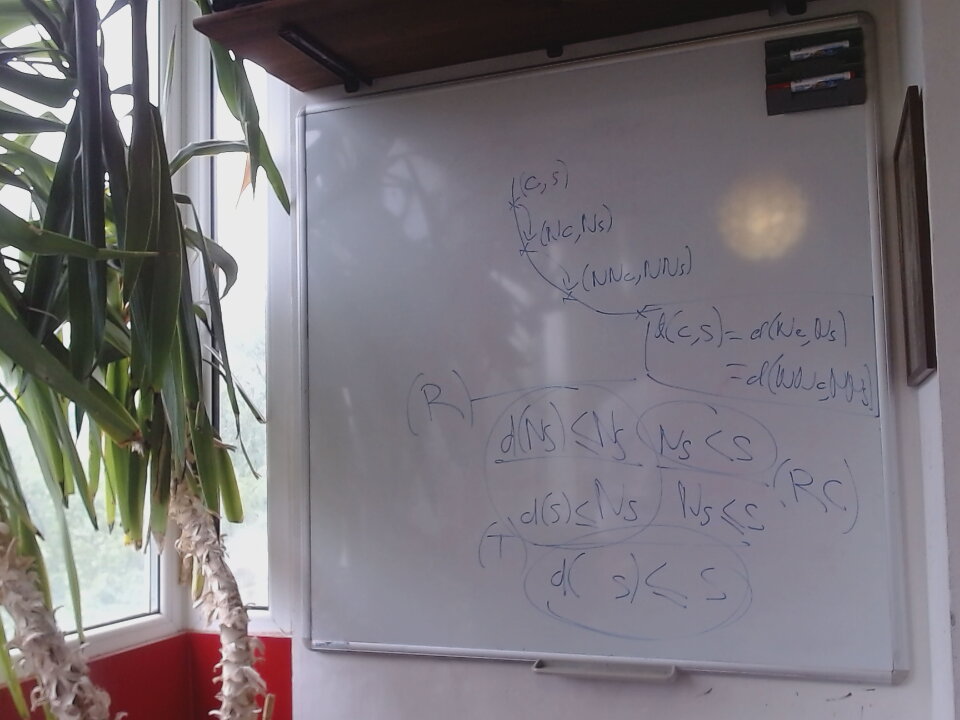 (c, s)
(Nc, Ns)
(NNc, NNs)
d(c, s) = d(Nc, Ns)
= d(NNc, NNs)
(R)
d(Ns) ≤ Ns Ns < s
d(s) ≤ Ns Ns ≤ s (RC)
(T)
d( s) ≤ s